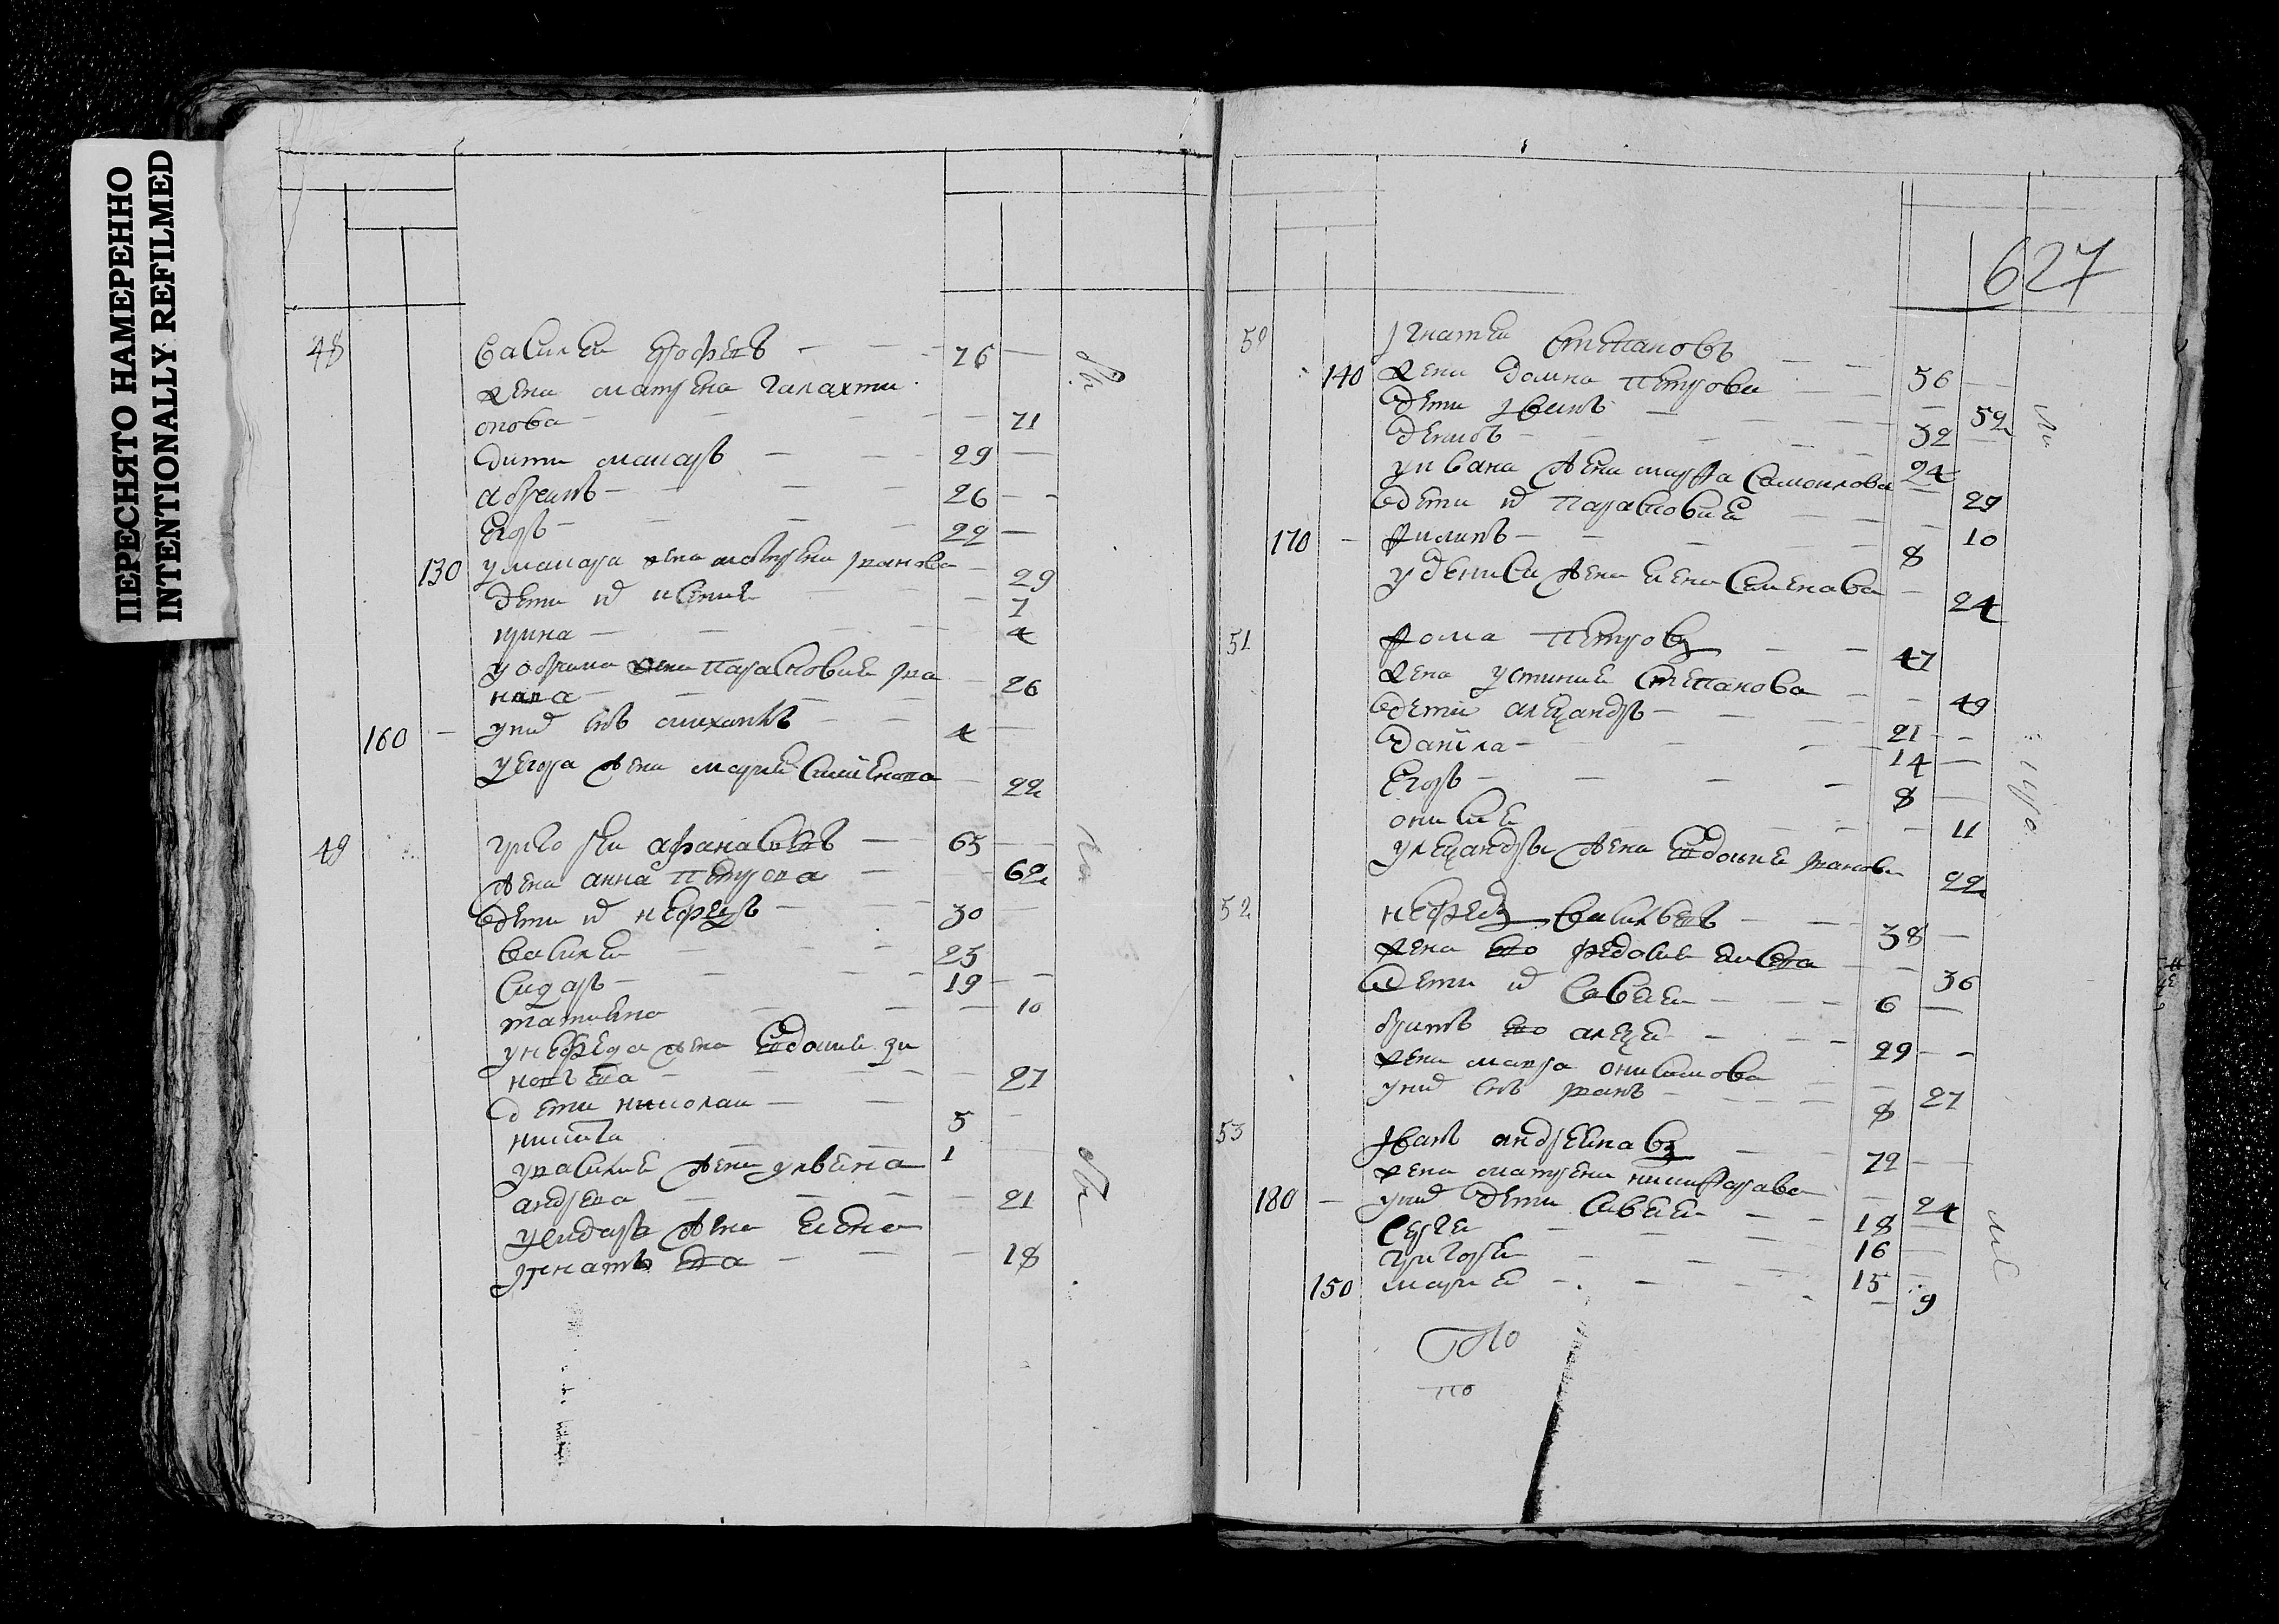 ПЕРЕСНЯТО НАМЕРЕННО
INTENTIONALLY REFILMED
48 василеи 76
жена матрена галахти
онова 71
дети макаръ 29
абрамъ 26
Егоръ 22
130 у макара жена 29
дети их 7
ирина 4
у абрама жена парасковия ива
нова 26
160 у них снъ михаилъ 4
у Егора жена мария 22
49 григореи афанасьевъ 65
жена анна петрова 62
дети их нефедъ 30
василеи 25
сидаръ 19
татияна 10
у нефеда жена федосия зи
новьева 27
дети николаи 5
никита 1
у василия жена ульяна
андреева 21
у сидара жена елена
игнатьева 18
627
50 игнатеи степановъ 56
140 жена домна петрова 52
дети иванъ 32
денисъ 24
у ивана жена марфа самоилова 29
дети их парасковия 10
170 филипъ 8
у дениса жена елена семенова 24
51 фома петровъ 47
жена устиния степанова 49
дети александръ 21
данила 14
Егоръ 8
онисия 11
у александры жена федосия иванова 22
52 нефедъ васильевъ 38
жена ево федосия 36
дети их савелеи 6
братъ ево алексеи 29
жена марфа онисимова 27
у них снъ иванъ 8
53 иванъ 72
жена матрена никифарава 24
180 у них дети савелеи 18
сергеи 16
григореи 15
150 мария 9
по
по